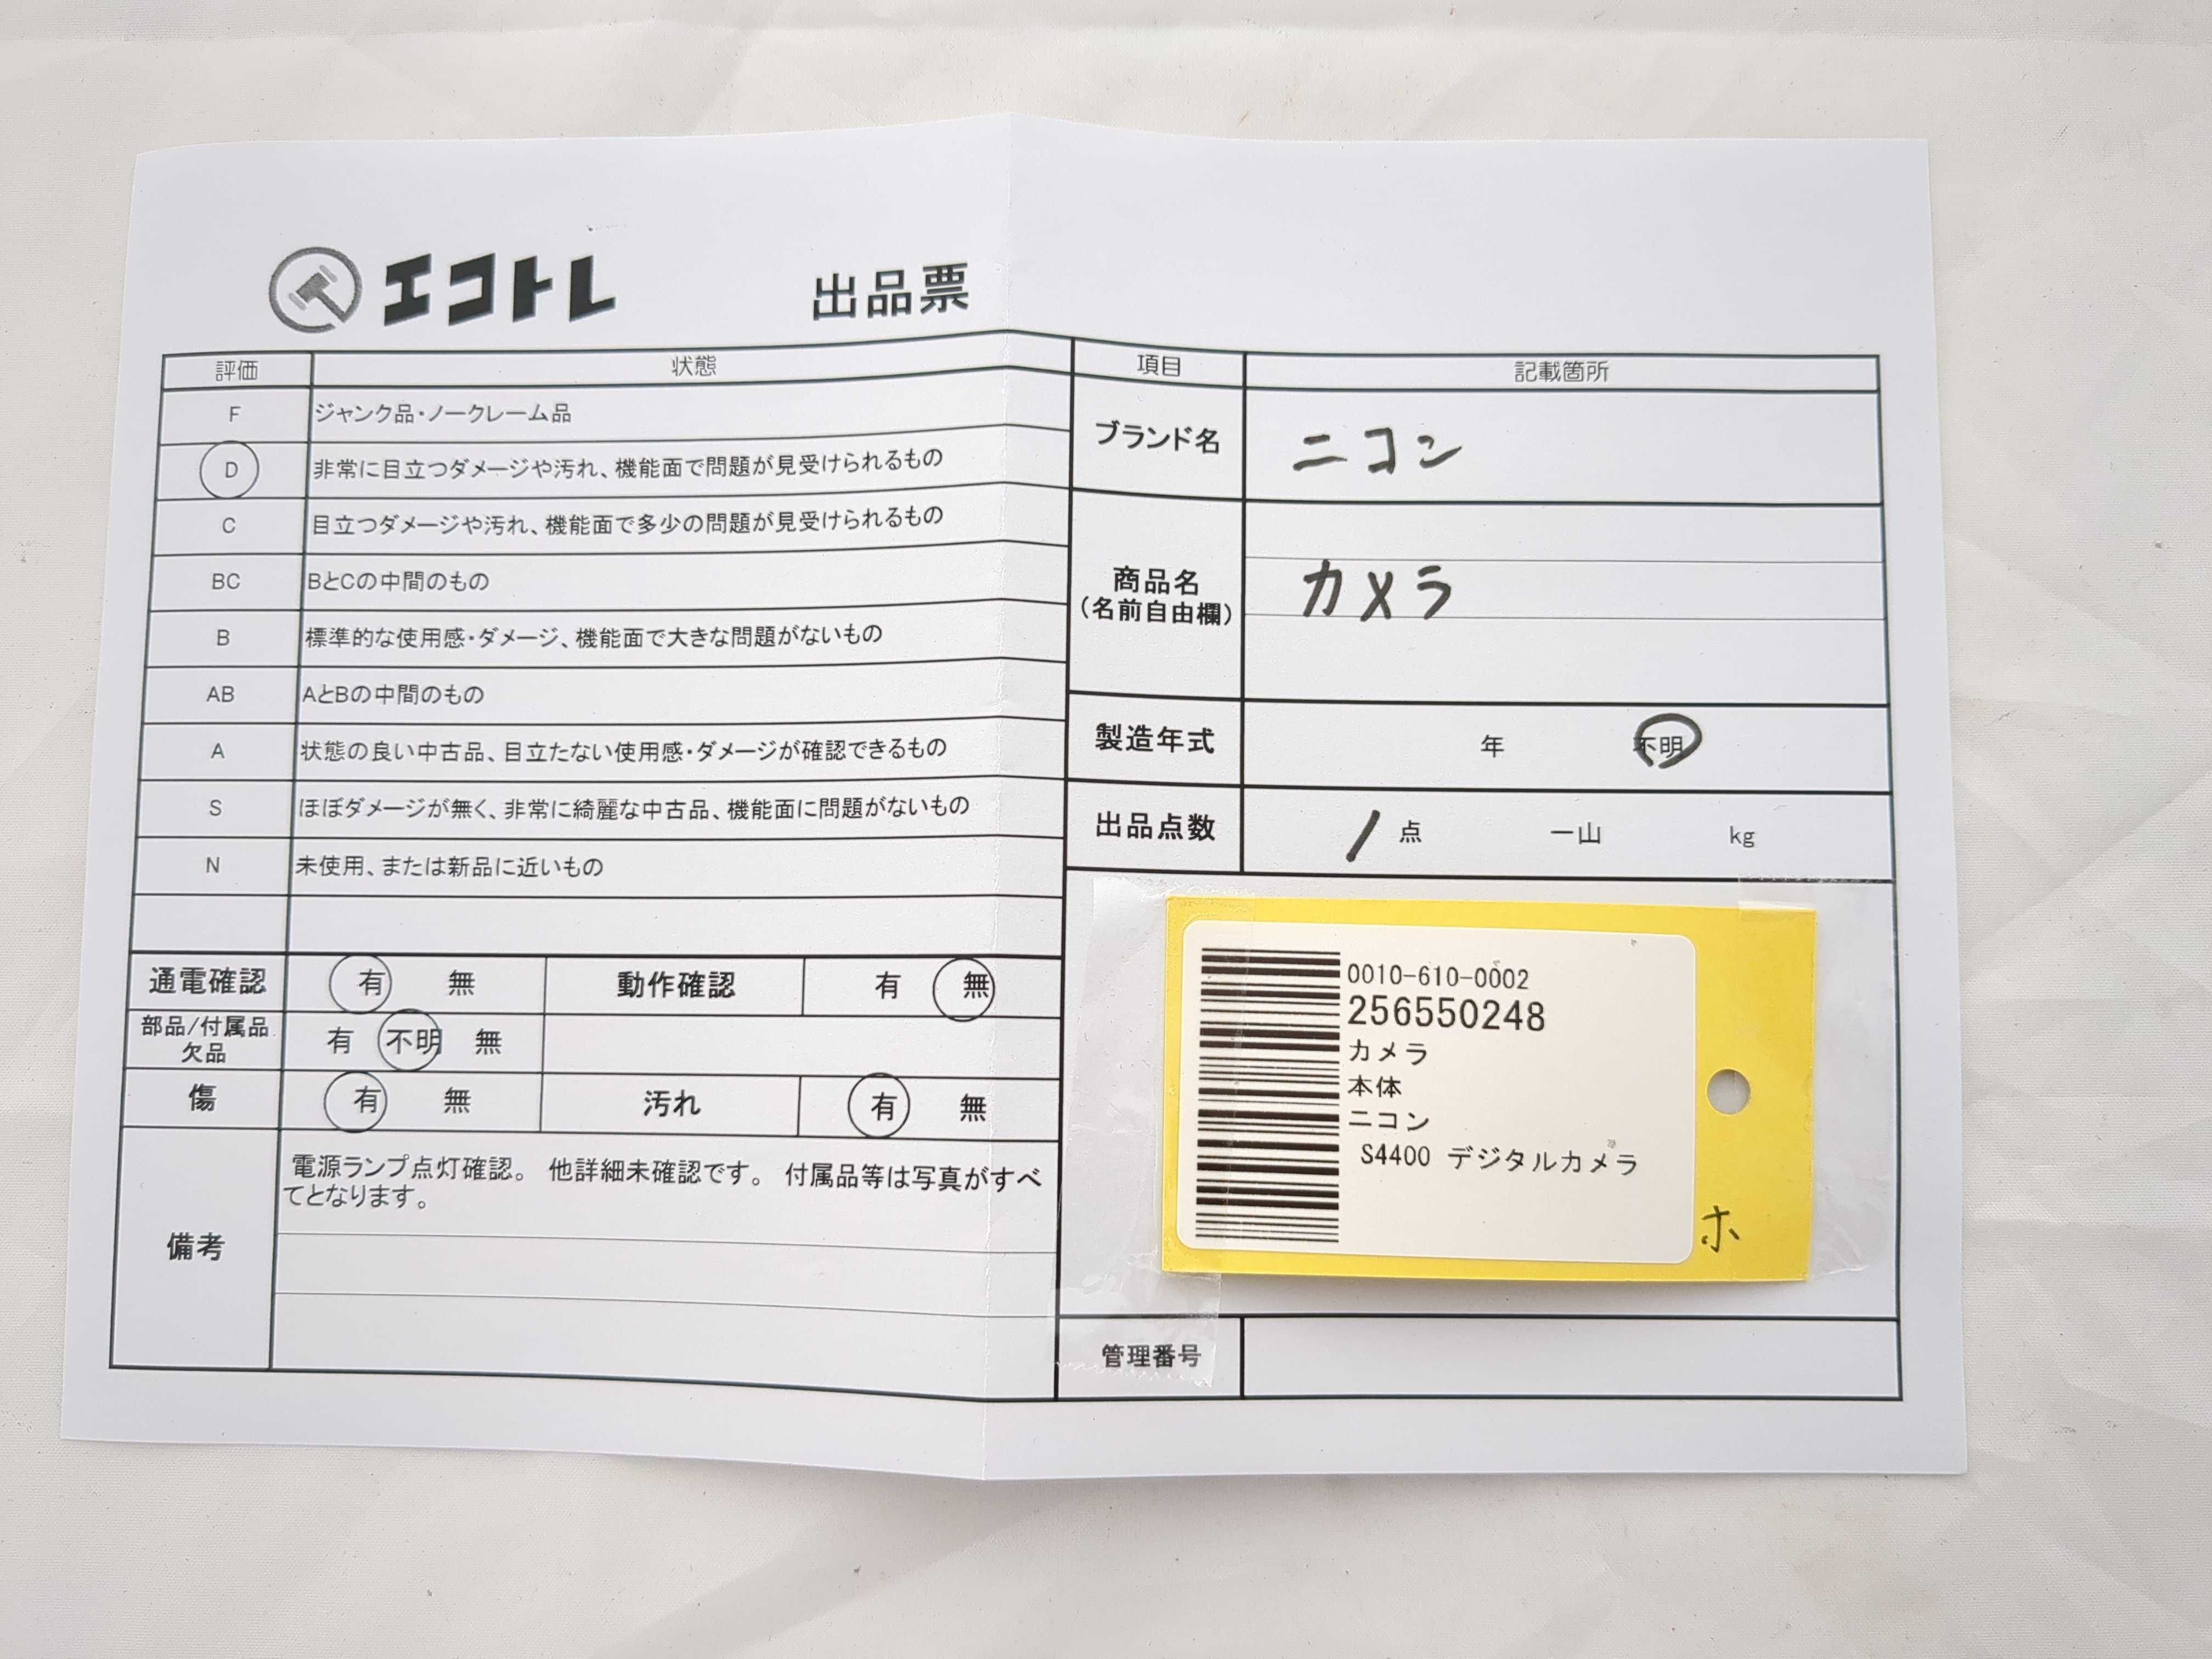 エコトレ 出品票
評価 状態
F ジャンク品・ノークレーム品
D 非常に目立つダメージや汚れ、機能面で問題が見受けられるもの
C 目立つダメージや汚れ、機能面で多少の問題が見受けられるもの
BC BとCの中間のもの
B 標準的な使用感・ダメージ、機能面で大きな問題がないもの
AB AとBの中間のもの
A 状態の良い中古品、目立たない使用感・ダメージが確認できるもの
S ほぼダメージが無く、非常に綺麗な中古品、機能面に問題がないもの
N 未使用、または新品に近いもの
通電確認 有 無 動作確認 有 無
部品/付属品
欠品 有 不明 無
傷 有 無 汚れ 有 無
備考
電源ランプ点灯確認。 他詳細未確認です。 付属品等は写真がすべ
てとなります。
項目 記載箇所
ブランド名 ニコン
商品名
(名前自由欄) カメラ
製造年式 年 不明
出品点数 1 点 一山 kg
0010-610-0002
256550248
カメラ
本体
ニコン
S4400 デジタルカメラ
ホ
管理番号